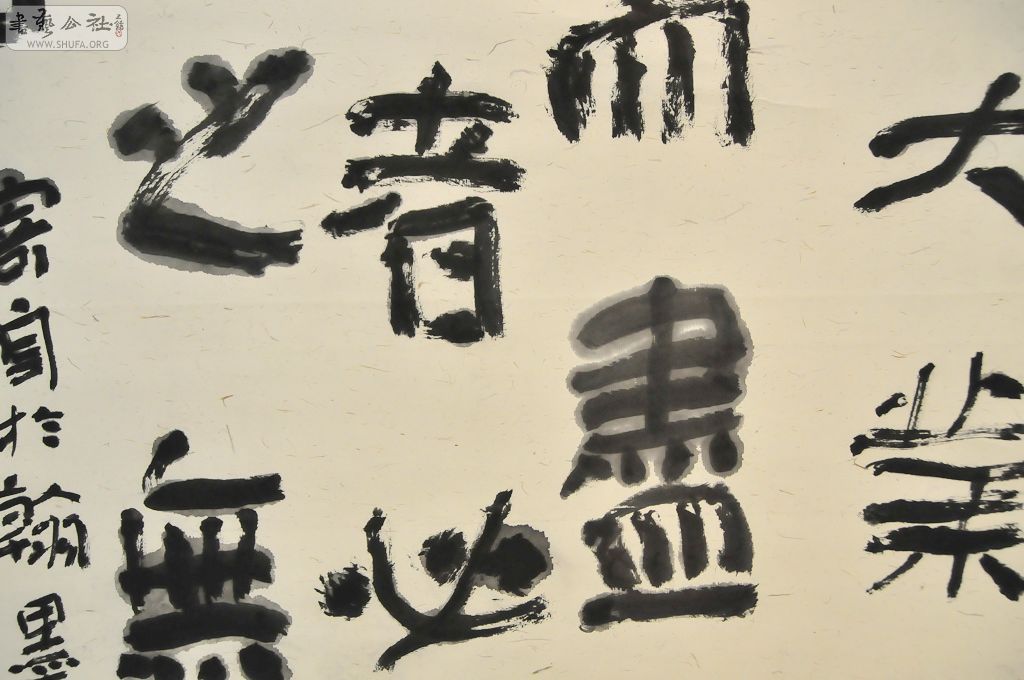 大業
而盡
者必
之無
寫於翰墨
書藝公社
WWW.SHUFA.ORG